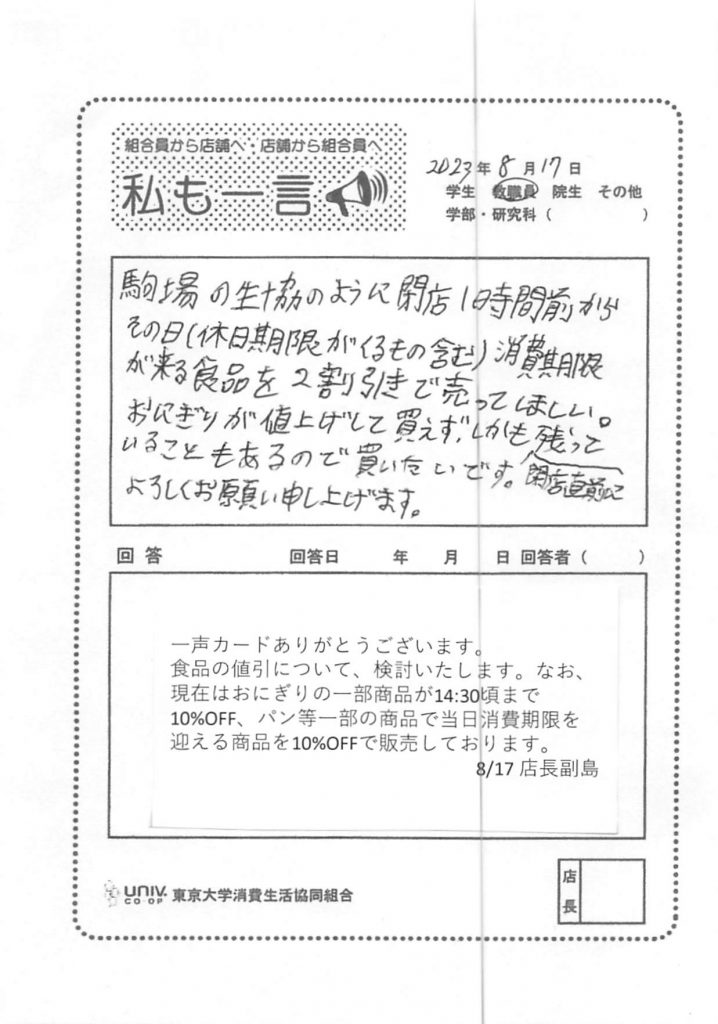 組合員から店舗へ・店舗から組合員へ
私も一言
2023年 8月 17日
学生 教職員 院生 その他
学部・研究科 ( )
駒場の生協のように閉店1時間前から
その日(休日期限がくるもの含む)消費期限
が来る食品を2割引きで売ってほしい。
おにぎりが値上げして買えず、しかも残って
いることもあるので買いたいです。閉店直前に
よろしくお願い申し上げます。
回答 回答日 年 月 日 回答者 ( )
一声カードありがとうございます。
食品の値引について、検討いたします。なお、
現在はおにぎりの一部商品が14:30頃まで
10%OFF、パン等一部の商品で当日消費期限を
迎える商品を10%OFFで販売しております。
8/17 店長副島
UNIV. CO-OP 東京大学消費生活協同組合
店長